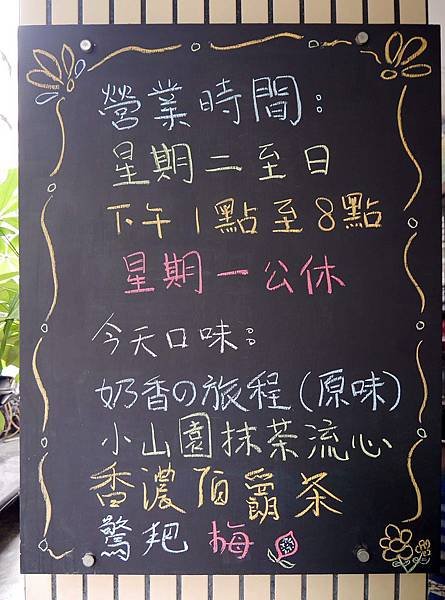 營業時間:
星期二至日
下午1點至8點
星期一公休
今天口味:
奶香の旅程(原味)
小山園抹茶流心
香濃伯爵茶
驚耙梅